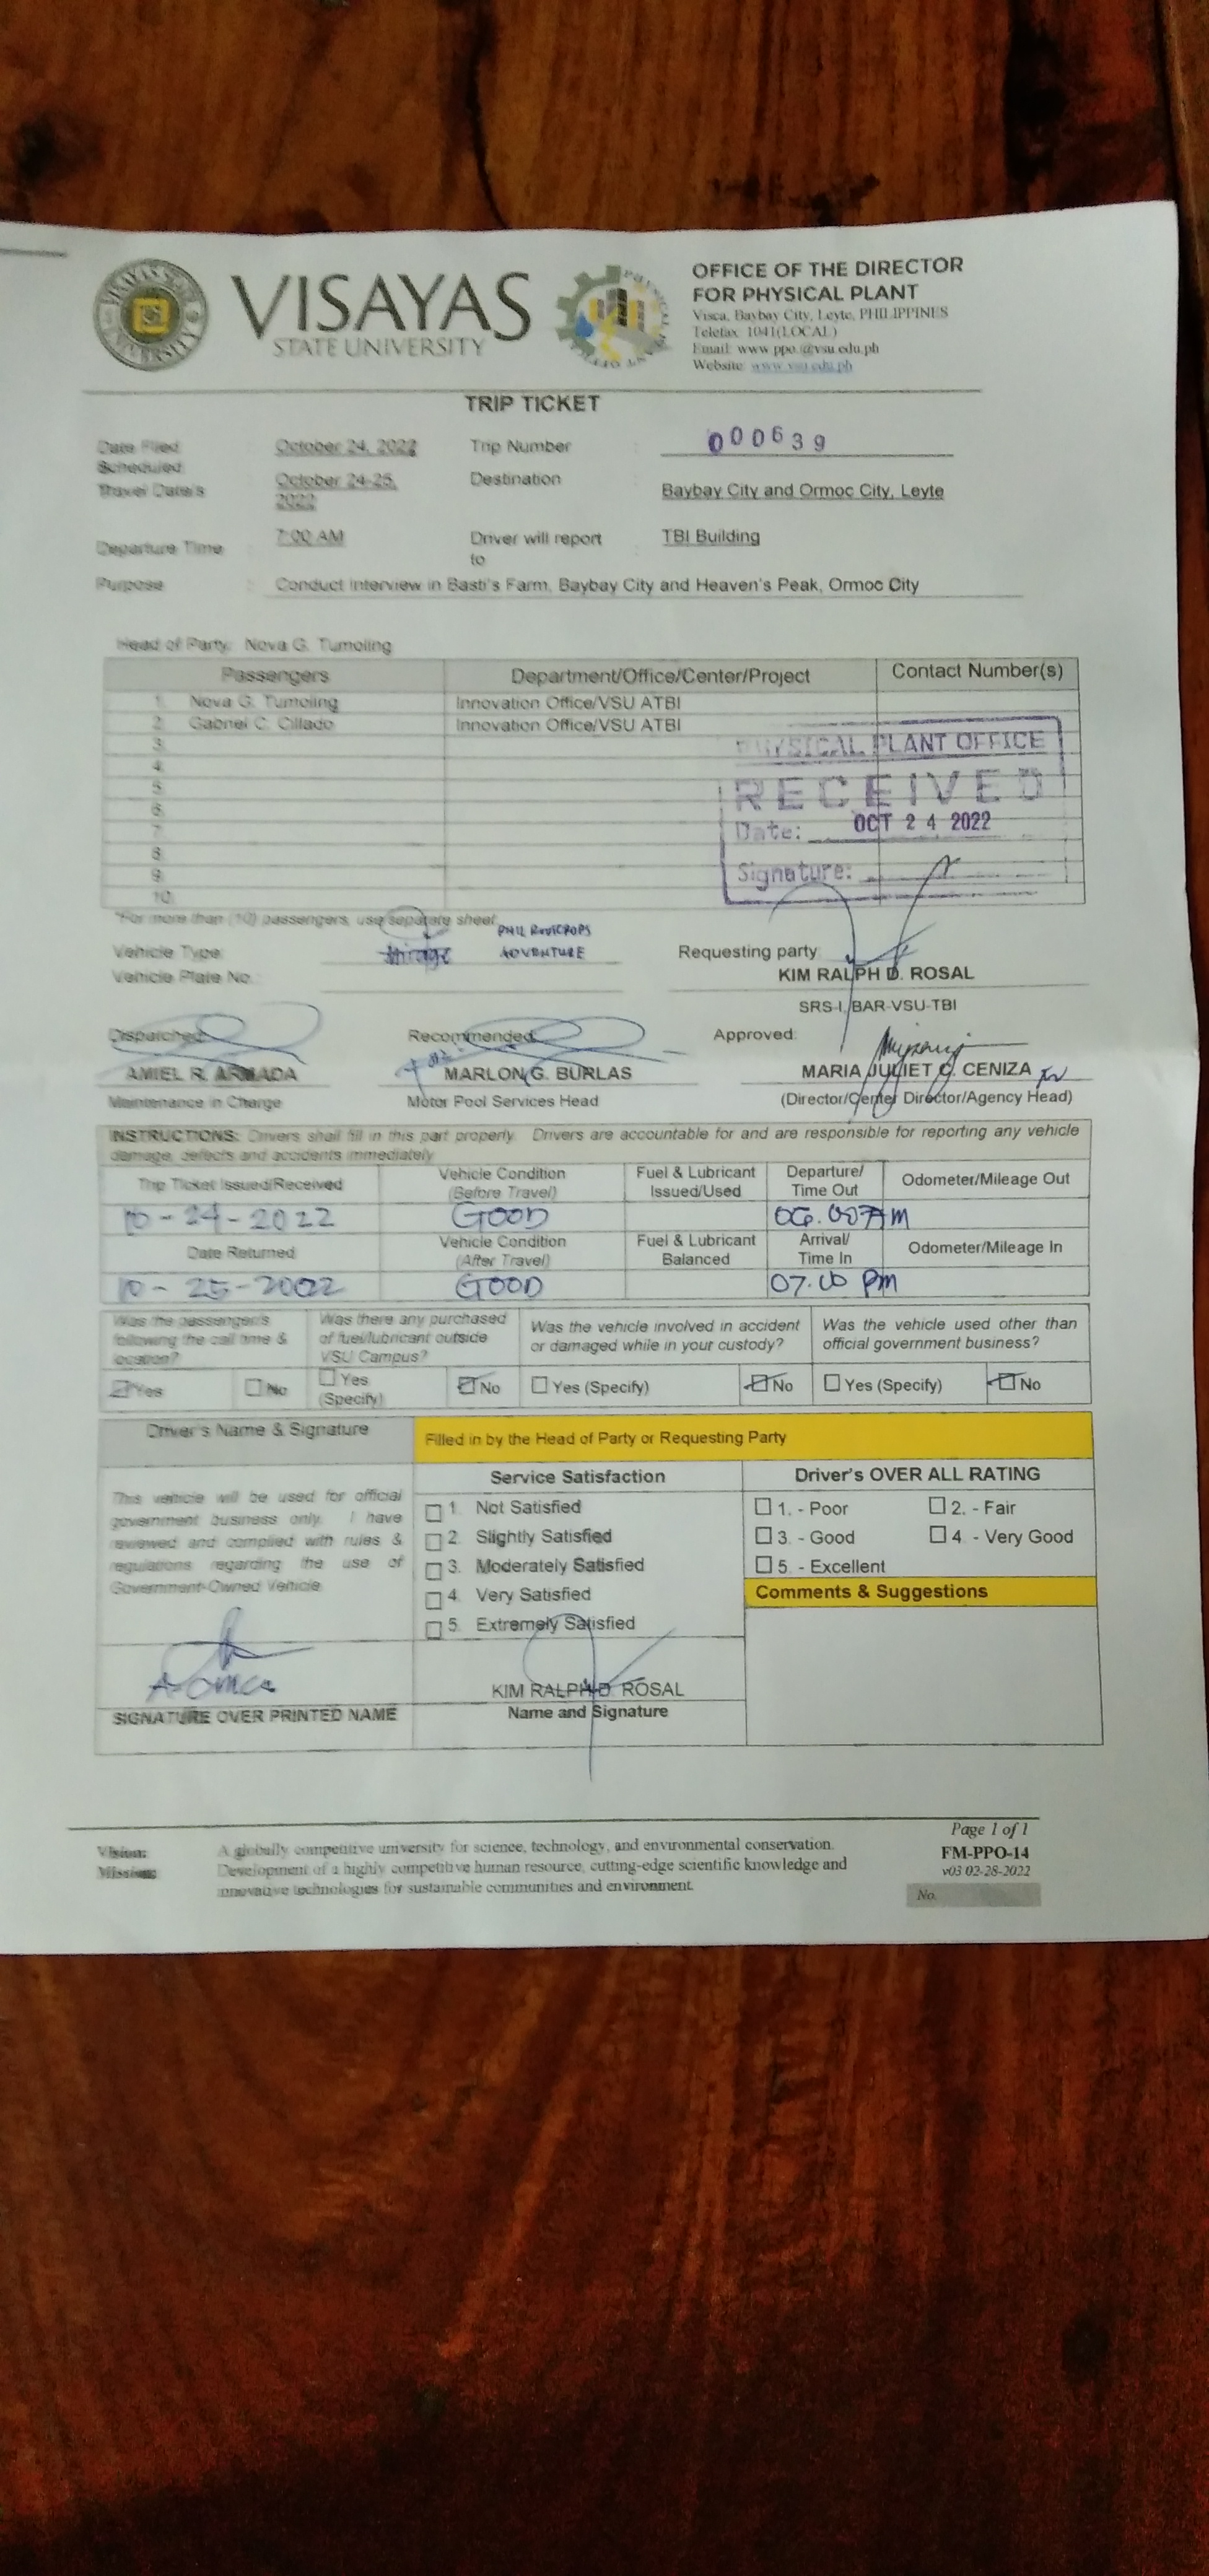 VISAYAS
STATE UNIVERSITY
OFFICE OF THE DIRECTOR
FOR PHYSICAL PLANT
Visca, Baybay City, Leyte, PHILIPPINES
Telefax. 1041(LOCAL)
Email: www ppo.@vsu.edu.ph
Website: www.vsu.edu.ph
TRIP TICKET
Date Filed October 24, 2022 Trip Number : 000639
Scheduled Travel Date/s October 24-25, 2022 Destination Baybay City and Ormoc City, Leyte
Departure Time 7:00 AM Driver will report to : TBI Building
Purpose : Conduct Interview in Basti's Farm, Baybay City and Heaven's Peak, Ormoc City
Head of Party: Nova G. Tumoling
Passengers Department/Office/Center/Project Contact Number(s)
1. Nova G. Tumoling Innovation Office/VSU ATBI
2. Gabriel C. Cillado Innovation Office/VSU ATBI
3.
4.
5.
6.
7.
8.
9.
10.
PHYSICAL PLANT OFFICE
RECEIVED
Date: OCT 24 2022
Signature:
*For more than (10) passengers, use separate sheet
Vehicle Type: Mirage PHIL ROOTCROPS ADVENTURE
Vehicle Plate No.
Requesting party:
KIM RALPH D. ROSAL
SRS-I, BAR-VSU-TBI
Dispatched: Recommended: Approved:
AMIEL R. ARMADA MARLON G. BURLAS MARIA JULIET C. CENIZA
Maintenance in Charge Motor Pool Services Head (Director/Center Director/Agency Head)
INSTRUCTIONS: Drivers shall fill in this part properly. Drivers are accountable for and are responsible for reporting any vehicle
damage, defects and accidents immediately
Trip Ticket Issued/Received Vehicle Condition (Before Travel) Fuel & Lubricant Issued/Used Departure/ Time Out Odometer/Mileage Out
10-24-2022 GOOD 06.00 AM
Date Returned Vehicle Condition (After Travel) Fuel & Lubricant Balanced Arrival/ Time In Odometer/Mileage In
10-25-2002 GOOD 07.00 PM
Was the passenger/s following the call time & location? Was there any purchased of fuel/lubricant outside VSU Campus? Was the vehicle involved in accident or damaged while in your custody? Was the vehicle used other than official government business?
Yes No Yes (Specify) No Yes (Specify) No Yes (Specify) No
Driver's Name & Signature Filled in by the Head of Party or Requesting Party
Service Satisfaction Driver's OVER ALL RATING
This vehicle will be used for official
government business only. I have
reviewed and complied with rules &
regulations regarding the use of
Government-Owned Vehicle.
1. Not Satisfied
2. Slightly Satisfied
3. Moderately Satisfied
4. Very Satisfied
5. Extremely Satisfied
1. - Poor 2. - Fair
3. - Good 4. - Very Good
5. - Excellent
Comments & Suggestions
KIM RALPH D. ROSAL
SIGNATURE OVER PRINTED NAME Name and Signature
Vision: A globally competitive university for science, technology, and environmental conservation.
Mission: Development of a highly competitive human resource, cutting-edge scientific knowledge and
innovative technologies for sustainable communities and environment.
Page 1 of 1
FM-PPO-14
v03 02-28-2022
No.